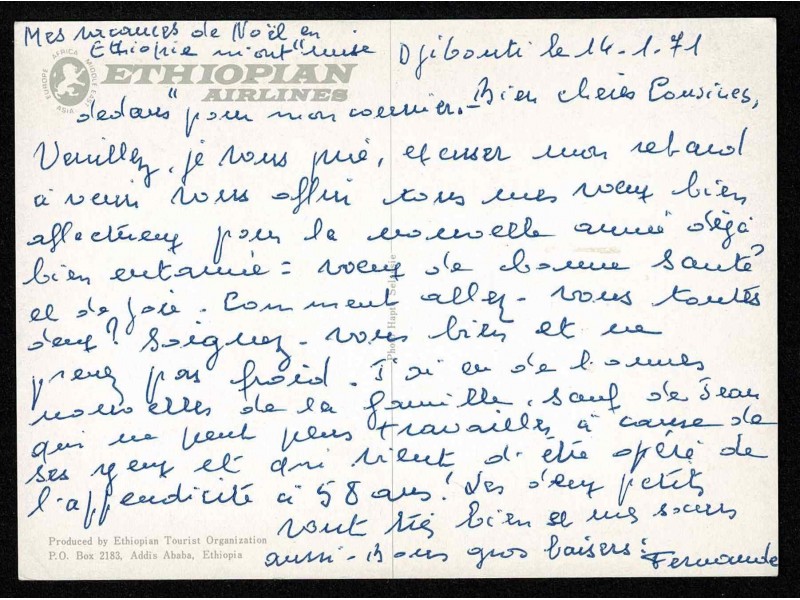 Mes vacances de Noël en
Ethiopie m'ont "mise
Djibouti le 14-1-71
EUROPE AFRICA MIDDLE EAST ASIA
ETHIOPIAN
AIRLINES
dedans" pour mon courrier.- Bien chères Cousines,
Veuillez, je vous prie, excuser mon retard
à venir vous offrir tous mes voeux bien
affectueux pour la nouvelle année déjà
bien entamée = voeux de bonne santé
et de joie. Comment allez-vous toutes
deux? Soignez-vous bien et ne
prenez pas froid. J'ai eu de bonnes
nouvelles de la famille, sauf de Jean
qui ne peut plus travailler à cause de
ses yeux et qui vient d'être opéré de
l'appendicite à 58 ans! Les deux petits
vont très bien et mes soeurs
aussi - Bons gros baisers: Fernande
Produced by Ethiopian Tourist Organization
P.O. Box 2183, Addis Ababa, Ethiopia
Photo Hapt